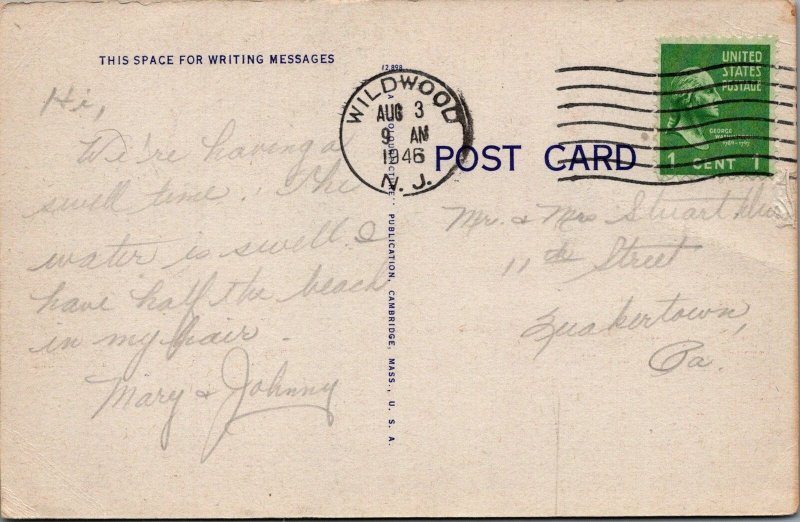 THIS SPACE FOR WRITING MESSAGES
Hi,
We're having a
swell time. The
water is swell. I
have half the beach
in my hair.
Mary & Johnny
12,898
PUBLICATION, CAMBRIDGE, MASS., U. S. A.
WILDWOOD
AUG 3
9 AM
1946
N. J.
POST CARD
UNITED
STATES
POSTAGE
GEORGE
1 CENT 1
Mr. & Mrs Stuart
11th Street
Quakertown,
Pa.